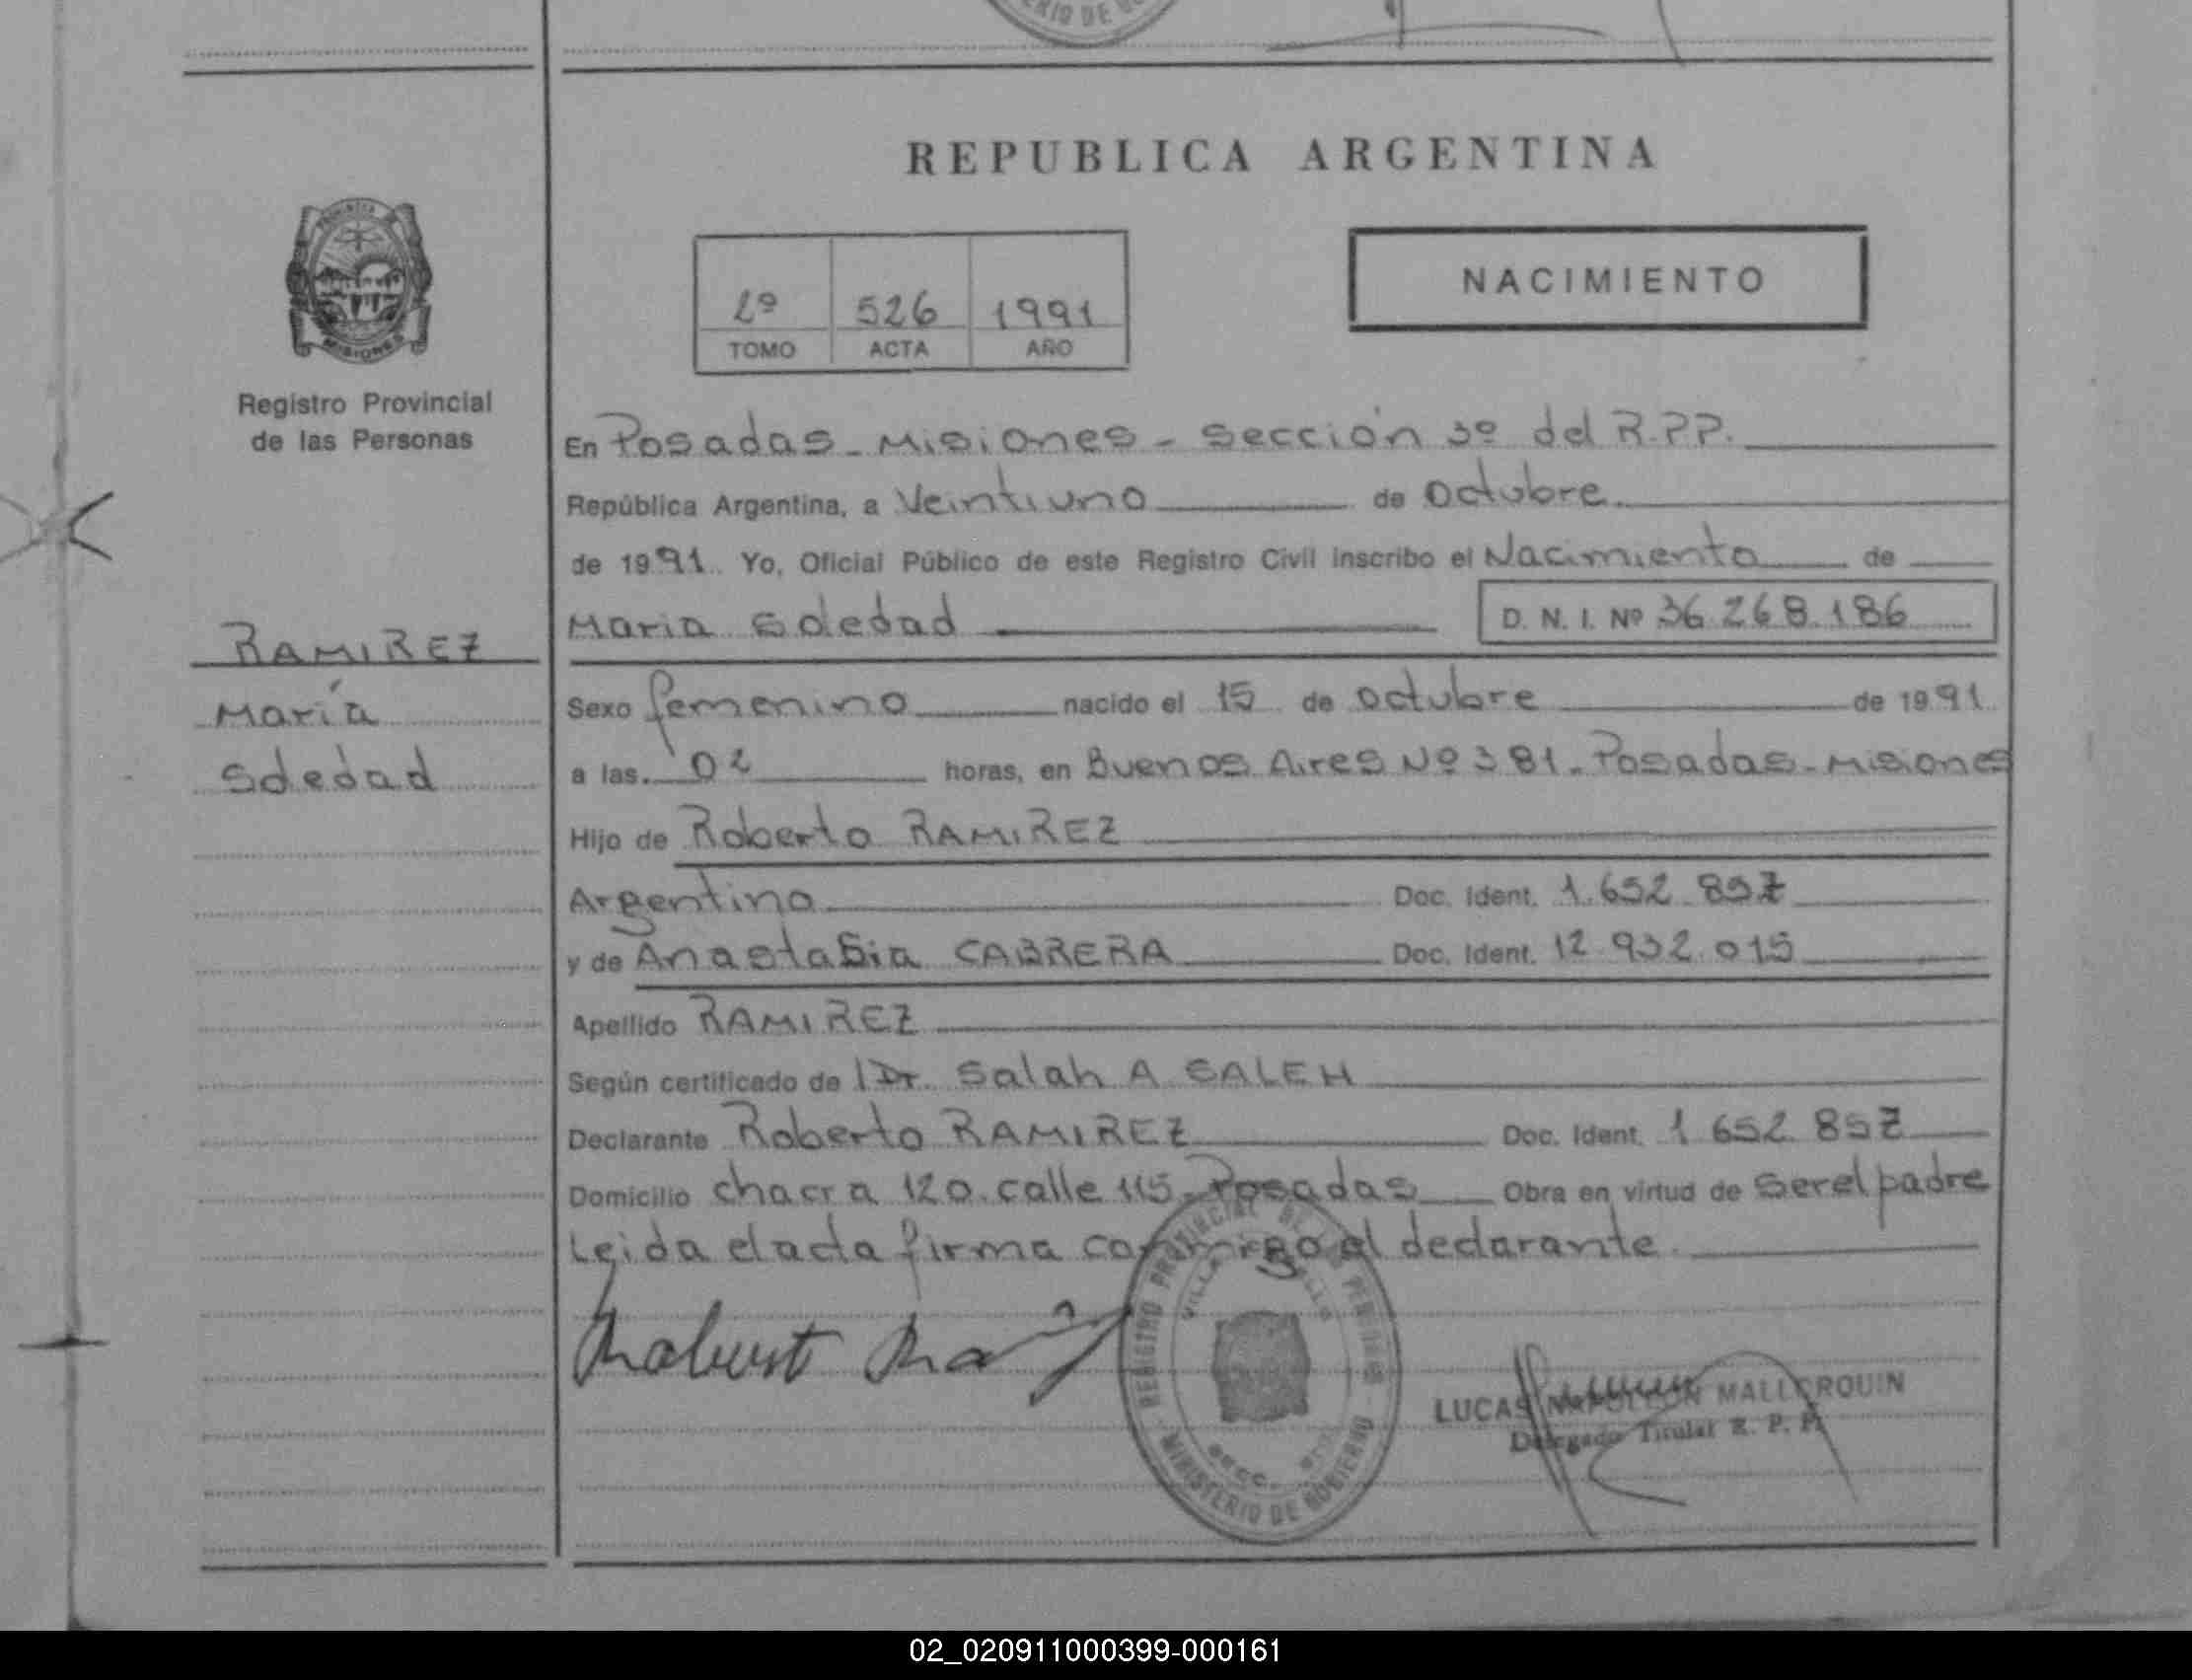 RIO DE
REPUBLICA ARGENTINA
PROVINCIA
MISIONES
Registro Provincial
de las Personas
2º 526 1991
TOMO ACTA AÑO
NACIMIENTO
En Posadas - Misiones - Sección 3º del R.P.P.
República Argentina, a Veintiuno de Octubre
de 1991. Yo, Oficial Público de este Registro Civil inscribo el Nacimiento de
Maria Soledad D. N. I. Nº 36.268.186
RAMIREZ
María
Soledad
Sexo femenino nacido el 15 de octubre de 1991
a las 02 horas, en Buenos Aires Nº 381 - Posadas - Misiones
Hijo de Roberto RAMIREZ
Argentino Doc. Ident. 1.652.857
y de Anastasia CABRERA Doc. Ident. 12.932.015
Apellido RAMIREZ
Según certificado de Dr. Salah A SALEH
Declarante Roberto RAMIREZ Doc. Ident. 1 652 857
Domicilio chacra 120. calle 115 - Posadas Obra en virtud de Ser el padre
Leida el acta firma conmigo el declarante.
REGISTRO PROVINCIAL DE LAS PERSONAS
MINISTERIO DE GOBIERNO
LUCAS NAPOLEON MALLORQUIN
Delegado Titular R. P. P.
02_020911000399-000161